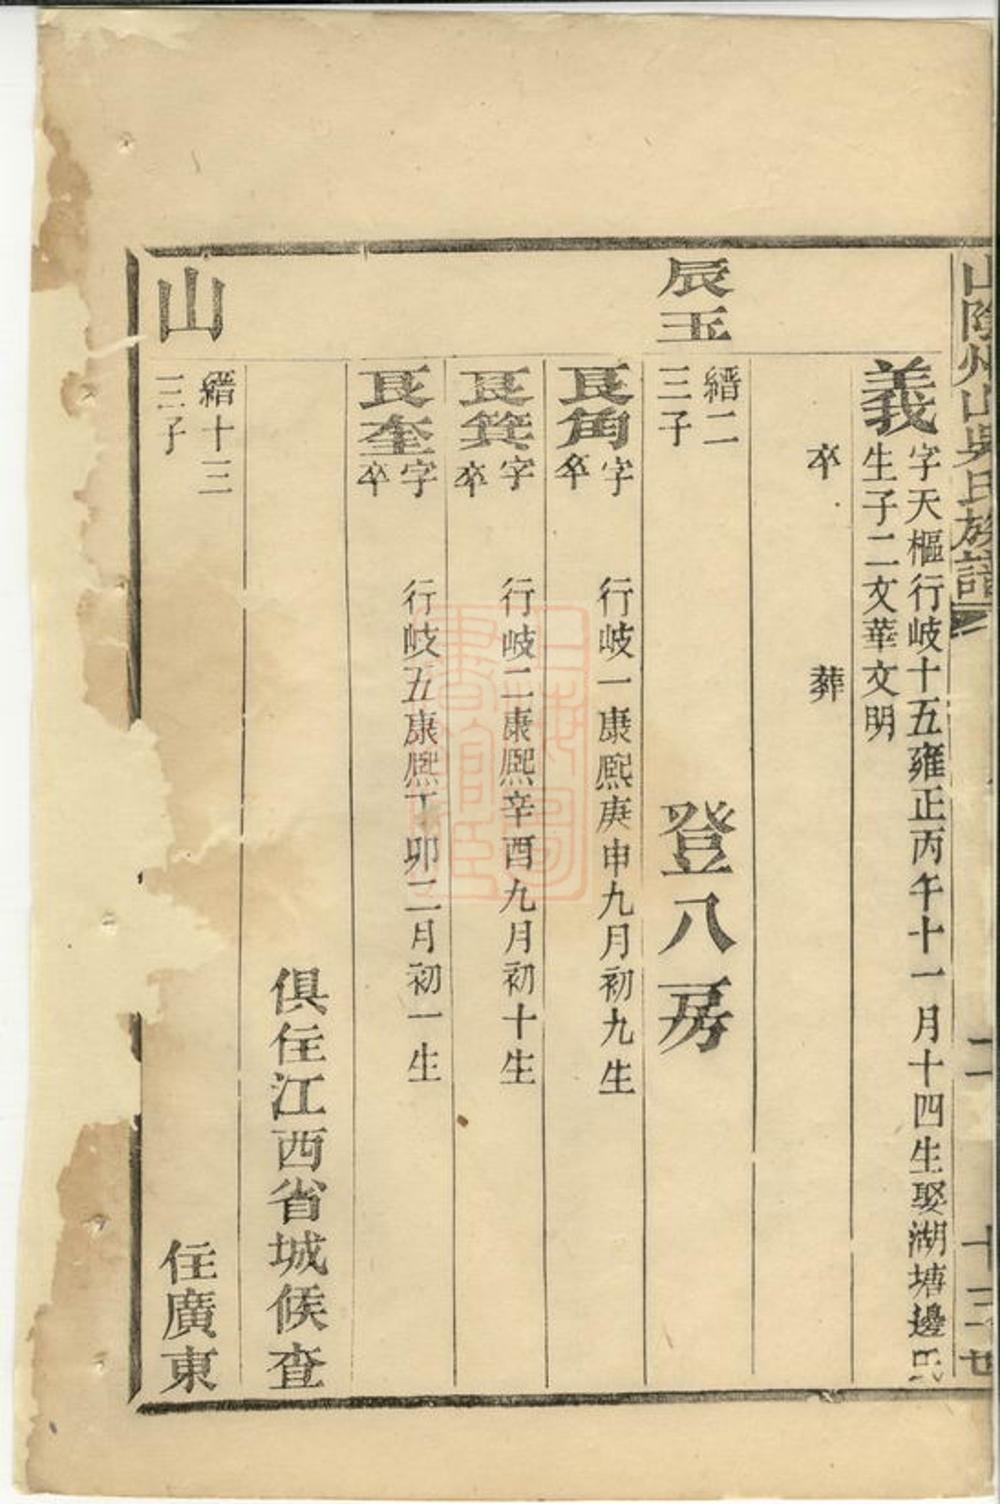 山陰州山吳氏族譜
二
十三世
義
字天樞行岐十五雍正丙午十一月十四生娶湖塘邊氏
生子二文華文明
卒 葬
辰玉
縉二
三子
登八房
艮角
字 行岐一康熙庚申九月初九生
卒
艮箕
字 行岐二康熙辛酉九月初十生
卒
艮奎
字 行岐五康熙丁卯二月初一生
卒
俱住江西省城候查
山
縉十三
三子
住廣東